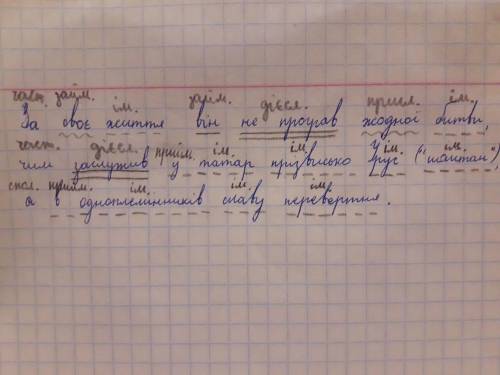 част. займ. ім. займ. дієсл. прикм. ім.
За своє життя він не програв жодної битви,
част. дієсл. прийм. ім. ім. ім. ім.
чим заслужив у татар прізвисько Урус ("шайтан"),
спол. прийм. ім. ім. ім.
а в одноплемінників славу перевертня.